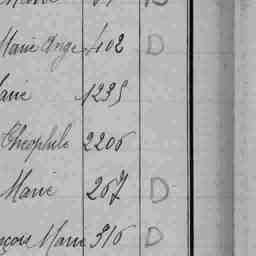 Marie Ange 402 D
Marie 1235
Théophile 2206
Marie 267 D
nçois Marie 316 D